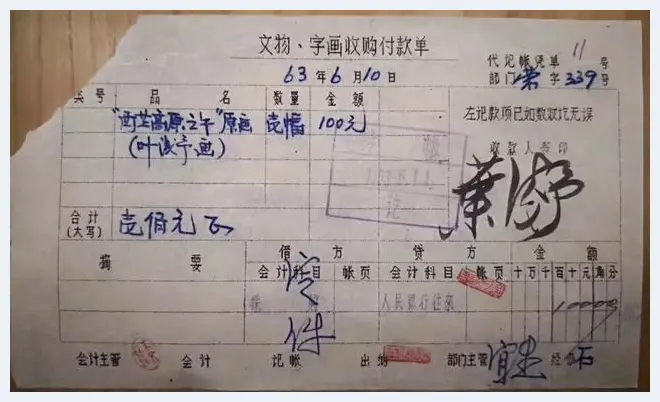 文物、字画收购付款单
代记帐凭单 11 号
63年6月10日
部门荣字339号
类号 品名 数量 金额
"西芷高原之午"原画 壹幅 100元
(叶浅予画)
左记款项已如数收讫无误
收款人签印
叶浅予
合计(大写) 壹佰元正
摘要 借方 贷方 金额
会计科目 帐页 会计科目 帐页 十万千百十元角分
人民银行往来 10000
会计主管 会计 记帐 出纳 部门主管 经 石